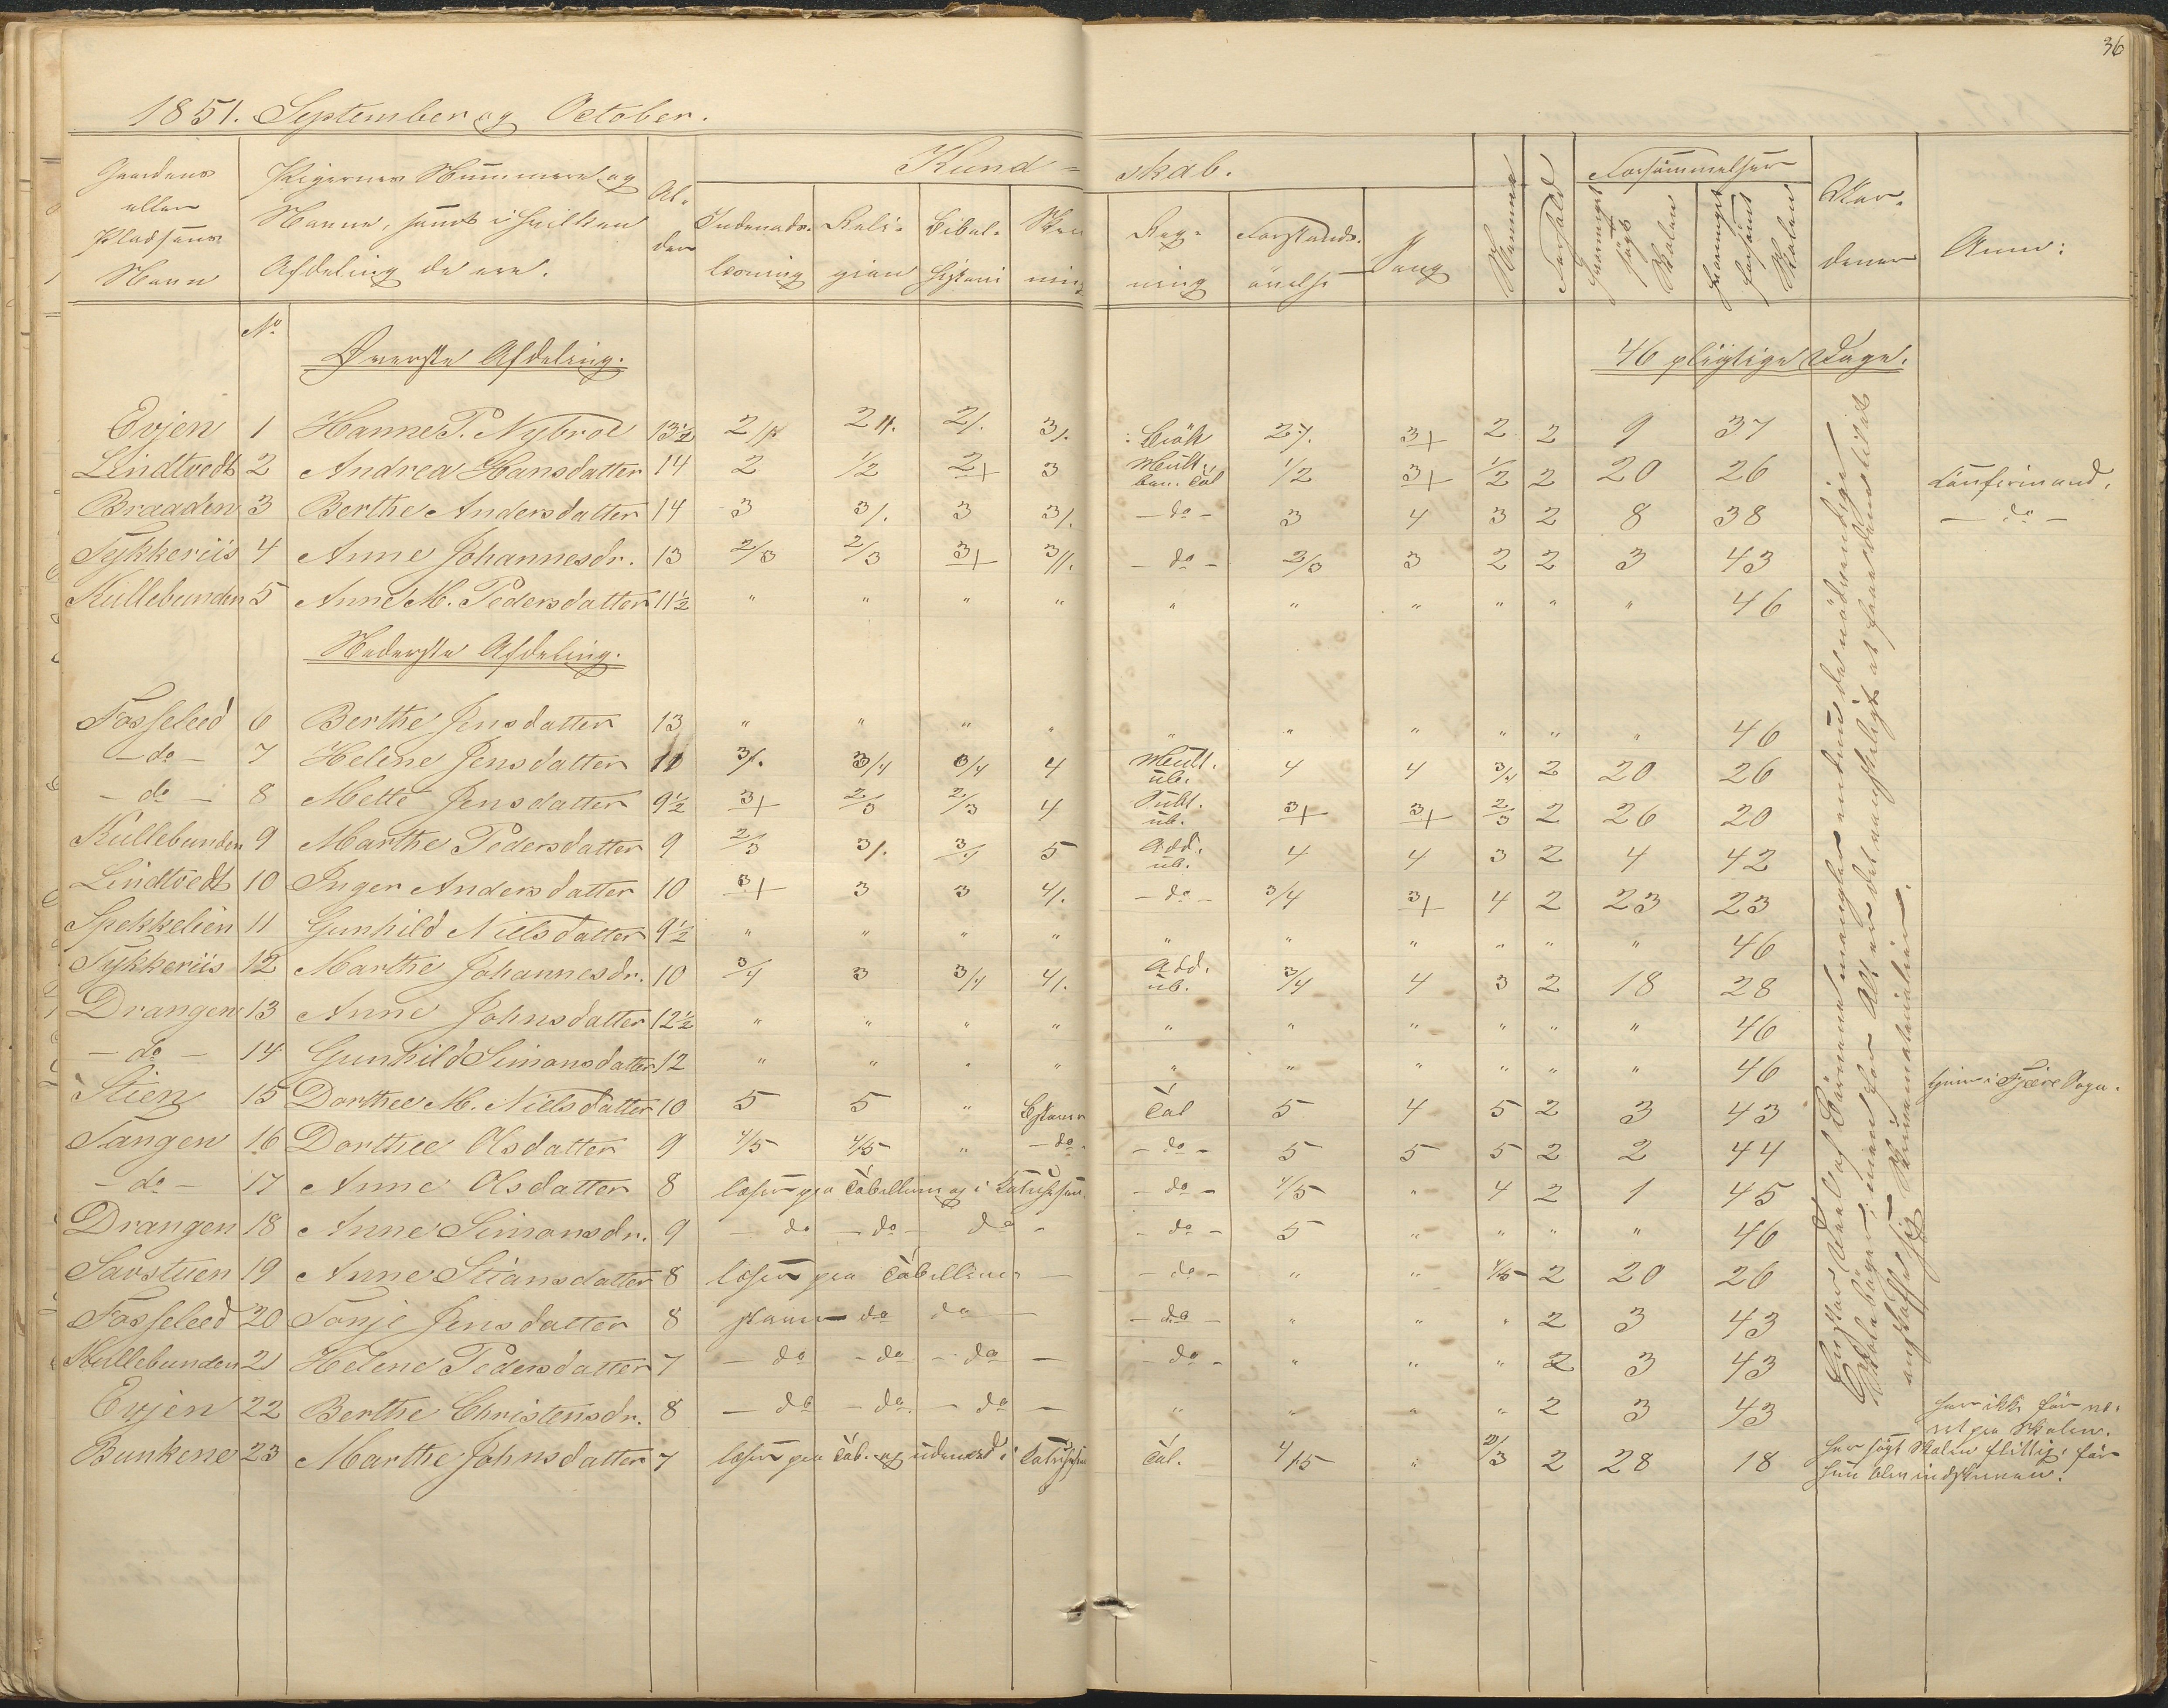 36
1851. September og October.
Gaardens eller Pladsens Navn | Pigernes Nummere og Navne, samt i hvilken Afdeling de ere. | Al-der | Kund-skab. | Evner | Forhold | Forsømmelser | Vær-dener | Anm:
Indenads-læsning | Reli-gion | Bibel-historie | Skriv-ning | Reg-ning | Forstands-øvelse | Sang | søgt Skolen | forsømt Skolen
No
Øverste Afdeling. | 46 pligtige Dage.
Evjen 1 Hanne P. Nybroe 13½ 2 2 2/. 3/. Brök 2/. 3+ 2 2 9 37
Lindtvedt 2 Andrea Hansdatter 14 2 1/2 2+ 3 Mult. ben. Tal 1/2 3+ 1/2 2 20 26 Confirmand.
Braaden 3 Berthe Andersdatter 14 3 3/. 3 3/. - do - 3 4 3 2 8 38 - do -
Tykkeriis 4 Anne Johannesdr. 13 2/3 2/3 3+ 3//. - do - 2/3 3 2 2 3 43
Kullebunden 5 Anne M. Pedersdatter 11½ " " " " " " " " " " 46
Nederste Afdeling.
Fosseleed 6 Berthe Jensdatter 13 " " " " " " " " " " 46
- do - 7 Helene Jensdatter 11 3/. 3/4 3/4 4 Mult. üb. 4 4 3/4 2 20 26
- do - 8 Mette Jensdatter 9½ 3+ 2/3 2/3 4 Subt. üb. 3+ 3+ 2/3 2 26 20
Kullebunden 9 Marthe Pedersdatter 9 2/3 3/. 3/4 5 Add. üb. 4 4 3 2 4 42
Lindtvedt 10 Inger Andersdatter 10 3+ 3 3 4/. - do - 3/4 3+ 4 2 23 23
Spekkelien 11 Gunhild Nielsdatter 9½ " " " " " " " " " " 46
Tykkeriis 12 Marthe Johannesdr. 10 3/4 3 3/4 4/. Add. üb. 3/4 4 3 2 18 28
Drangen 13 Anne Johnsdatter 12½ " " " " " " " " " " 46
- do - 14 Gunhild Simonsdatter 12 " " " " " " " " " " 46 hjem i Fjære Sogn.
Stien 15 Dorthee M. Nielsdatter 10 5 5 " Tal 5 4 5 2 3 43
Tangen 16 Dorthee Olsdatter 9 4/5 4/5 " - do - - do - 5 5 5 2 2 44
- do - 17 Anne Olsdatter 8 læser paa Tabellerne og i - do - 4/5 " 4 2 1 45
Drangen 18 Anne Simonsdr. 9 - do - do - do - - do - 5 " " " " 46
Savstuen 19 Anne Stiansdatter 8 læser paa Tabellerne - - do - " " 4/5 2 20 26
Fosseleed 20 Tonje Jensdatter 8 staver do do - - do - " " " 2 3 43
Kullebunden 21 Helene Pedersdatter 7 - do - do - do - - do - " " " 2 3 43
Evjen 22 Berthe Christensdr. 8 - do - do - do - " " " " 2 3 43 har ikke før væ-ret paa Skolen.
Bunkene 23 Marthe Johnsdatter 7 læser paa Tab. og udenad i Tal. 4/5 " 2/3 2 28 18 har søgt Skolen flittig, før hun blev indskreven.